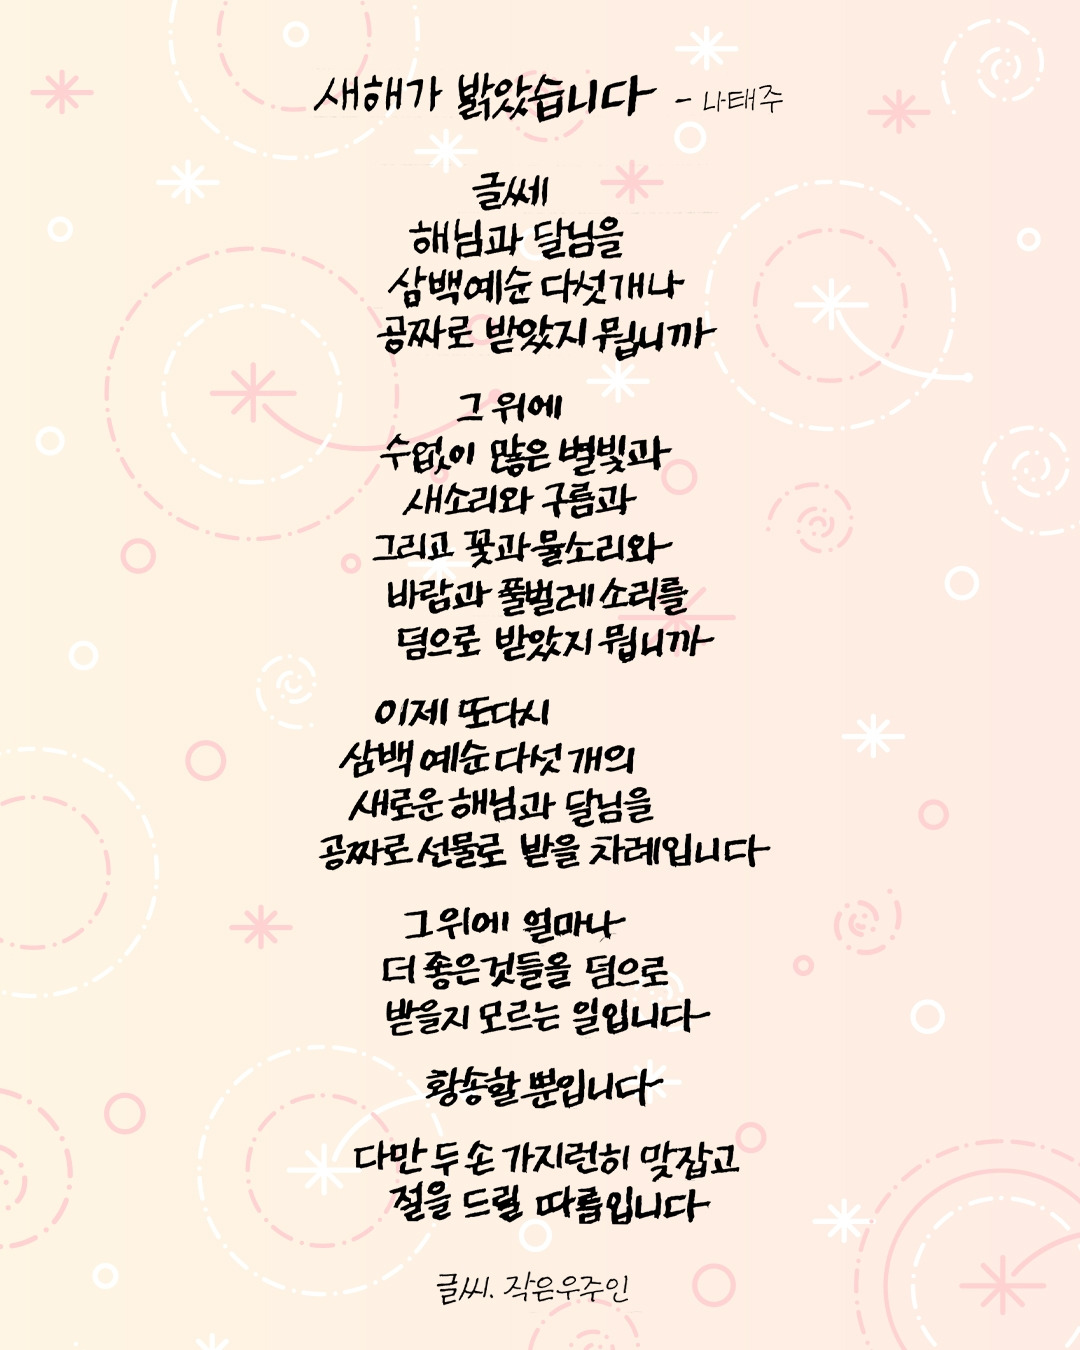 새해가 밝았습니다 - 나태주
글쎄
해님과 달님을
삼백예순 다섯개나
공짜로 받았지 뭡니까
그 위에
수없이 많은 별빛과
새소리와 구름과
그리고 꽃과 물소리와
바람과 풀벌레 소리를
덤으로 받았지 뭡니까
이제 또다시
삼백 예순다섯 개의
새로운 해님과 달님을
공짜로 선물로 받을 차례입니다
그 위에 얼마나
더 좋은것들을 덤으로
받을지 모르는 일입니다
황송할 뿐입니다
다만 두 손 가지런히 맞잡고
절을 드릴 따름입니다
글씨. 작은우주인